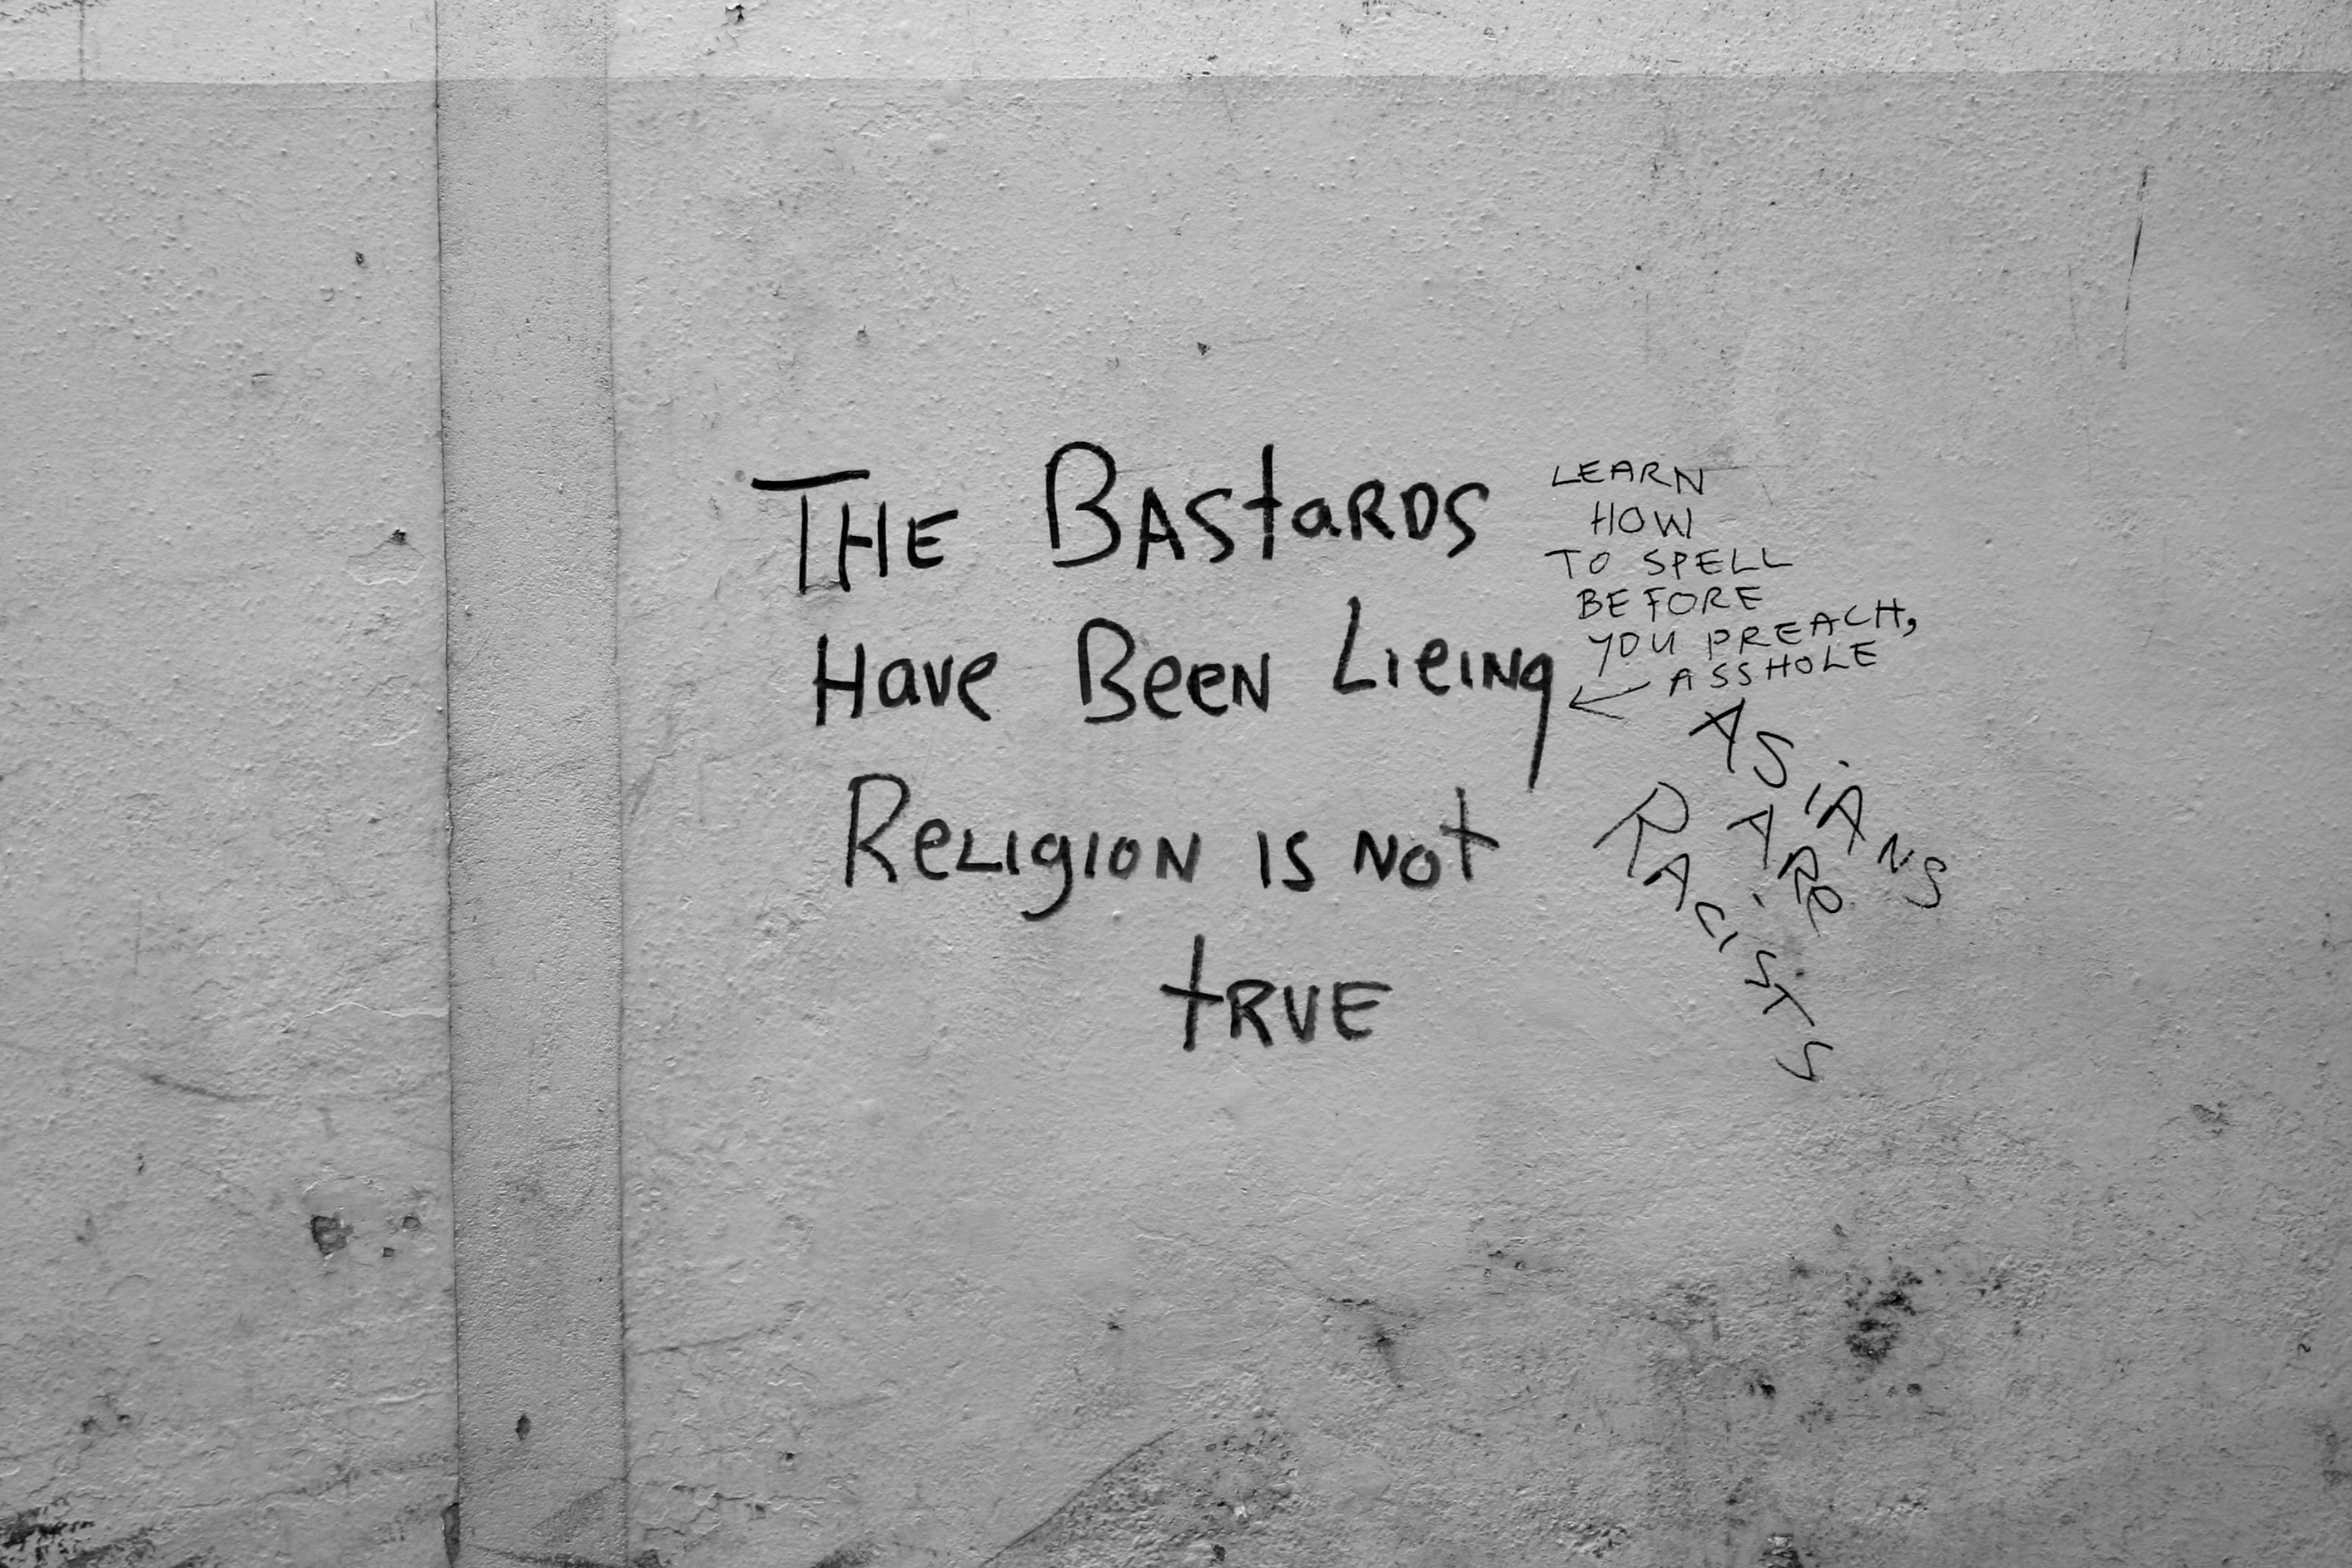 THE BAStaRDS
Have BeeN LieiNg
ReLIgION IS NOt
tRUE
LEARN
HOW
TO SPELL
BEFORE
YOU PREACH,
← ASSHOLE
ASiANS
ARE
RACISTS